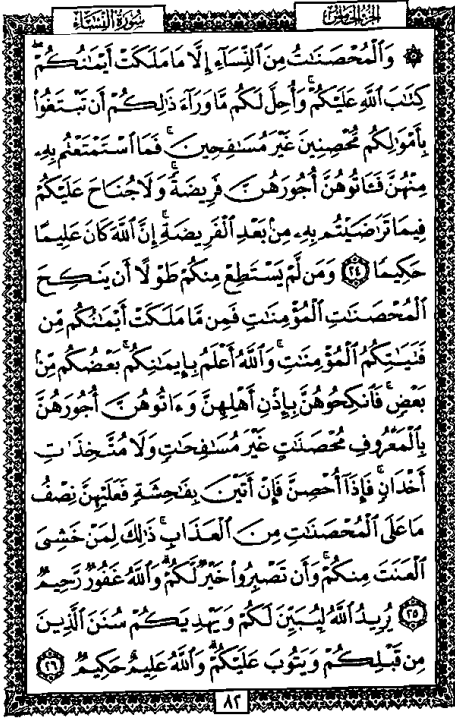 الجزء الخامس سورة النساء
۞ وَٱلْمُحْصَنَـٰتُ مِنَ ٱلنِّسَآءِ إِلَّا مَا مَلَكَتْ أَيْمَـٰنُكُمْ ۖ
كِتَـٰبَ ٱللَّهِ عَلَيْكُمْ ۚ وَأُحِلَّ لَكُم مَّا وَرَآءَ ذَٰلِكُمْ أَن تَبْتَغُوا۟
بِأَمْوَٰلِكُم مُّحْصِنِينَ غَيْرَ مُسَـٰفِحِينَ ۚ فَمَا ٱسْتَمْتَعْتُم بِهِۦ
مِنْهُنَّ فَـَٔاتُوهُنَّ أُجُورَهُنَّ فَرِيضَةً ۚ وَلَا جُنَاحَ عَلَيْكُمْ
فِيمَا تَرَٰضَيْتُم بِهِۦ مِنۢ بَعْدِ ٱلْفَرِيضَةِ ۚ إِنَّ ٱللَّهَ كَانَ عَلِيمًا
حَكِيمًا ٢٤ وَمَن لَّمْ يَسْتَطِعْ مِنكُمْ طَوْلًا أَن يَنكِحَ
ٱلْمُحْصَنَـٰتِ ٱلْمُؤْمِنَـٰتِ فَمِن مَّا مَلَكَتْ أَيْمَـٰنُكُم مِّن
فَتَيَـٰتِكُمُ ٱلْمُؤْمِنَـٰتِ ۚ وَٱللَّهُ أَعْلَمُ بِإِيمَـٰنِكُم ۚ بَعْضُكُم مِّنۢ
بَعْضٍ ۚ فَٱنكِحُوهُنَّ بِإِذْنِ أَهْلِهِنَّ وَءَاتُوهُنَّ أُجُورَهُنَّ
بِٱلْمَعْرُوفِ مُحْصَنَـٰتٍ غَيْرَ مُسَـٰفِحَـٰتٍ وَلَا مُتَّخِذَٰتِ
أَخْدَانٍ ۚ فَإِذَآ أُحْصِنَّ فَإِنْ أَتَيْنَ بِفَـٰحِشَةٍ فَعَلَيْهِنَّ نِصْفُ
مَا عَلَى ٱلْمُحْصَنَـٰتِ مِنَ ٱلْعَذَابِ ۚ ذَٰلِكَ لِمَنْ خَشِىَ
ٱلْعَنَتَ مِنكُمْ ۚ وَأَن تَصْبِرُوا۟ خَيْرٌ لَّكُمْ ۗ وَٱللَّهُ غَفُورٌ رَّحِيمٌ
٢٥ يُرِيدُ ٱللَّهُ لِيُبَيِّنَ لَكُمْ وَيَهْدِيَكُمْ سُنَنَ ٱلَّذِينَ
مِن قَبْلِكُمْ وَيَتُوبَ عَلَيْكُمْ ۗ وَٱللَّهُ عَلِيمٌ حَكِيمٌ ٢٦
٨٢